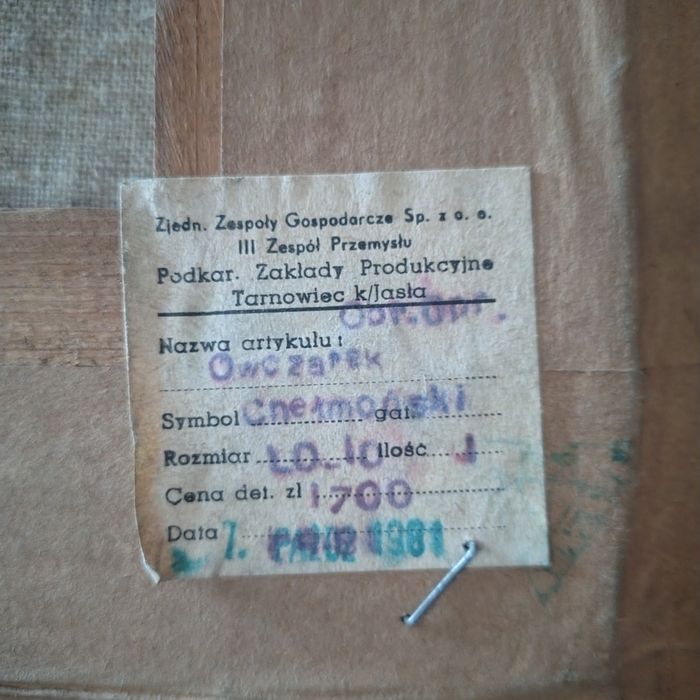 Zjedn. Zespoły Gospodarcze Sp. z o. o.
III Zespół Przemysłu
Podkar. Zakłady Produkcyjne
Tarnowiec k/Jasła
Nazwa artykułu:
Owczarek
Symbol Chełmoński gat.
Rozmiar ilość 1
Cena det. zł 1700
Data 7. PAŹDZ 1981